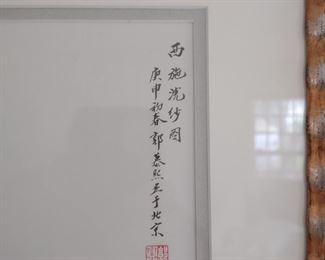 西施浣纱图
庚申初春郭慕熙画于北京